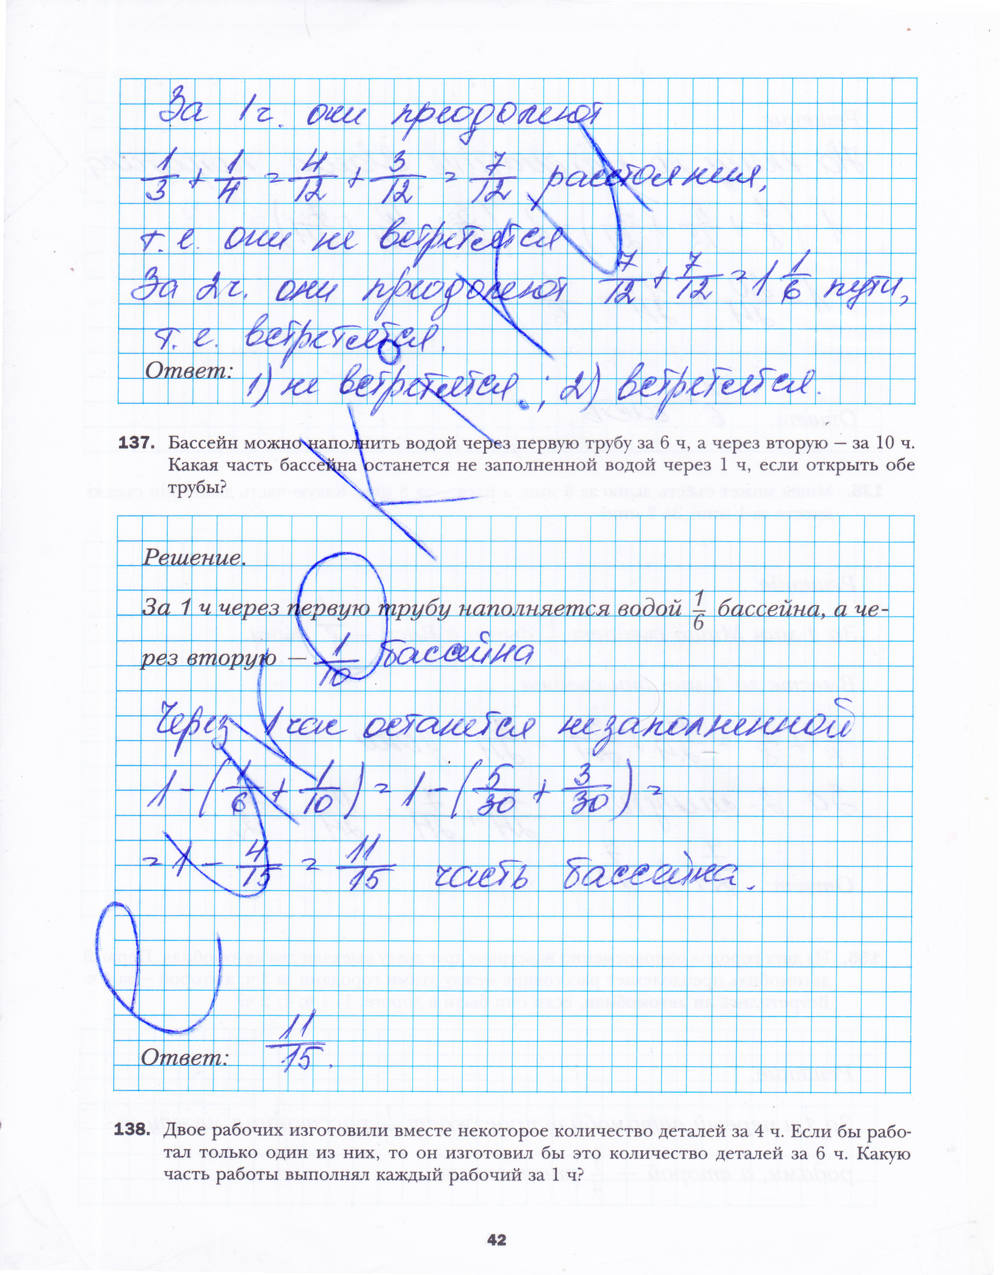 За 1 ч. они преодолеют
1/3 + 1/4 = 4/12 + 3/12 = 7/12 расстояния,
т. е. они не встретятся
За 2 ч. они преодолеют 7/12 + 7/12 = 1 1/6 пути,
т. е. встретятся.
Ответ: 1) не встретятся.; 2) встретятся.
137. Бассейн можно наполнить водой через первую трубу за 6 ч, а через вторую — за 10 ч.
Какая часть бассейна останется не заполненной водой через 1 ч, если открыть обе
трубы?
Решение.
За 1 ч через первую трубу наполняется водой 1/6 бассейна, а че-
рез вторую — 1/10 бассейна
Через 1 час останется незаполненной
1 - (1/6 + 1/10) = 1 - (5/30 + 3/30) =
= 1 - 4/15 = 11/15 часть бассейна.
Ответ: 11/15.
138. Двое рабочих изготовили вместе некоторое количество деталей за 4 ч. Если бы рабо-
тал только один из них, то он изготовил бы это количество деталей за 6 ч. Какую
часть работы выполнял каждый рабочий за 1 ч?
42